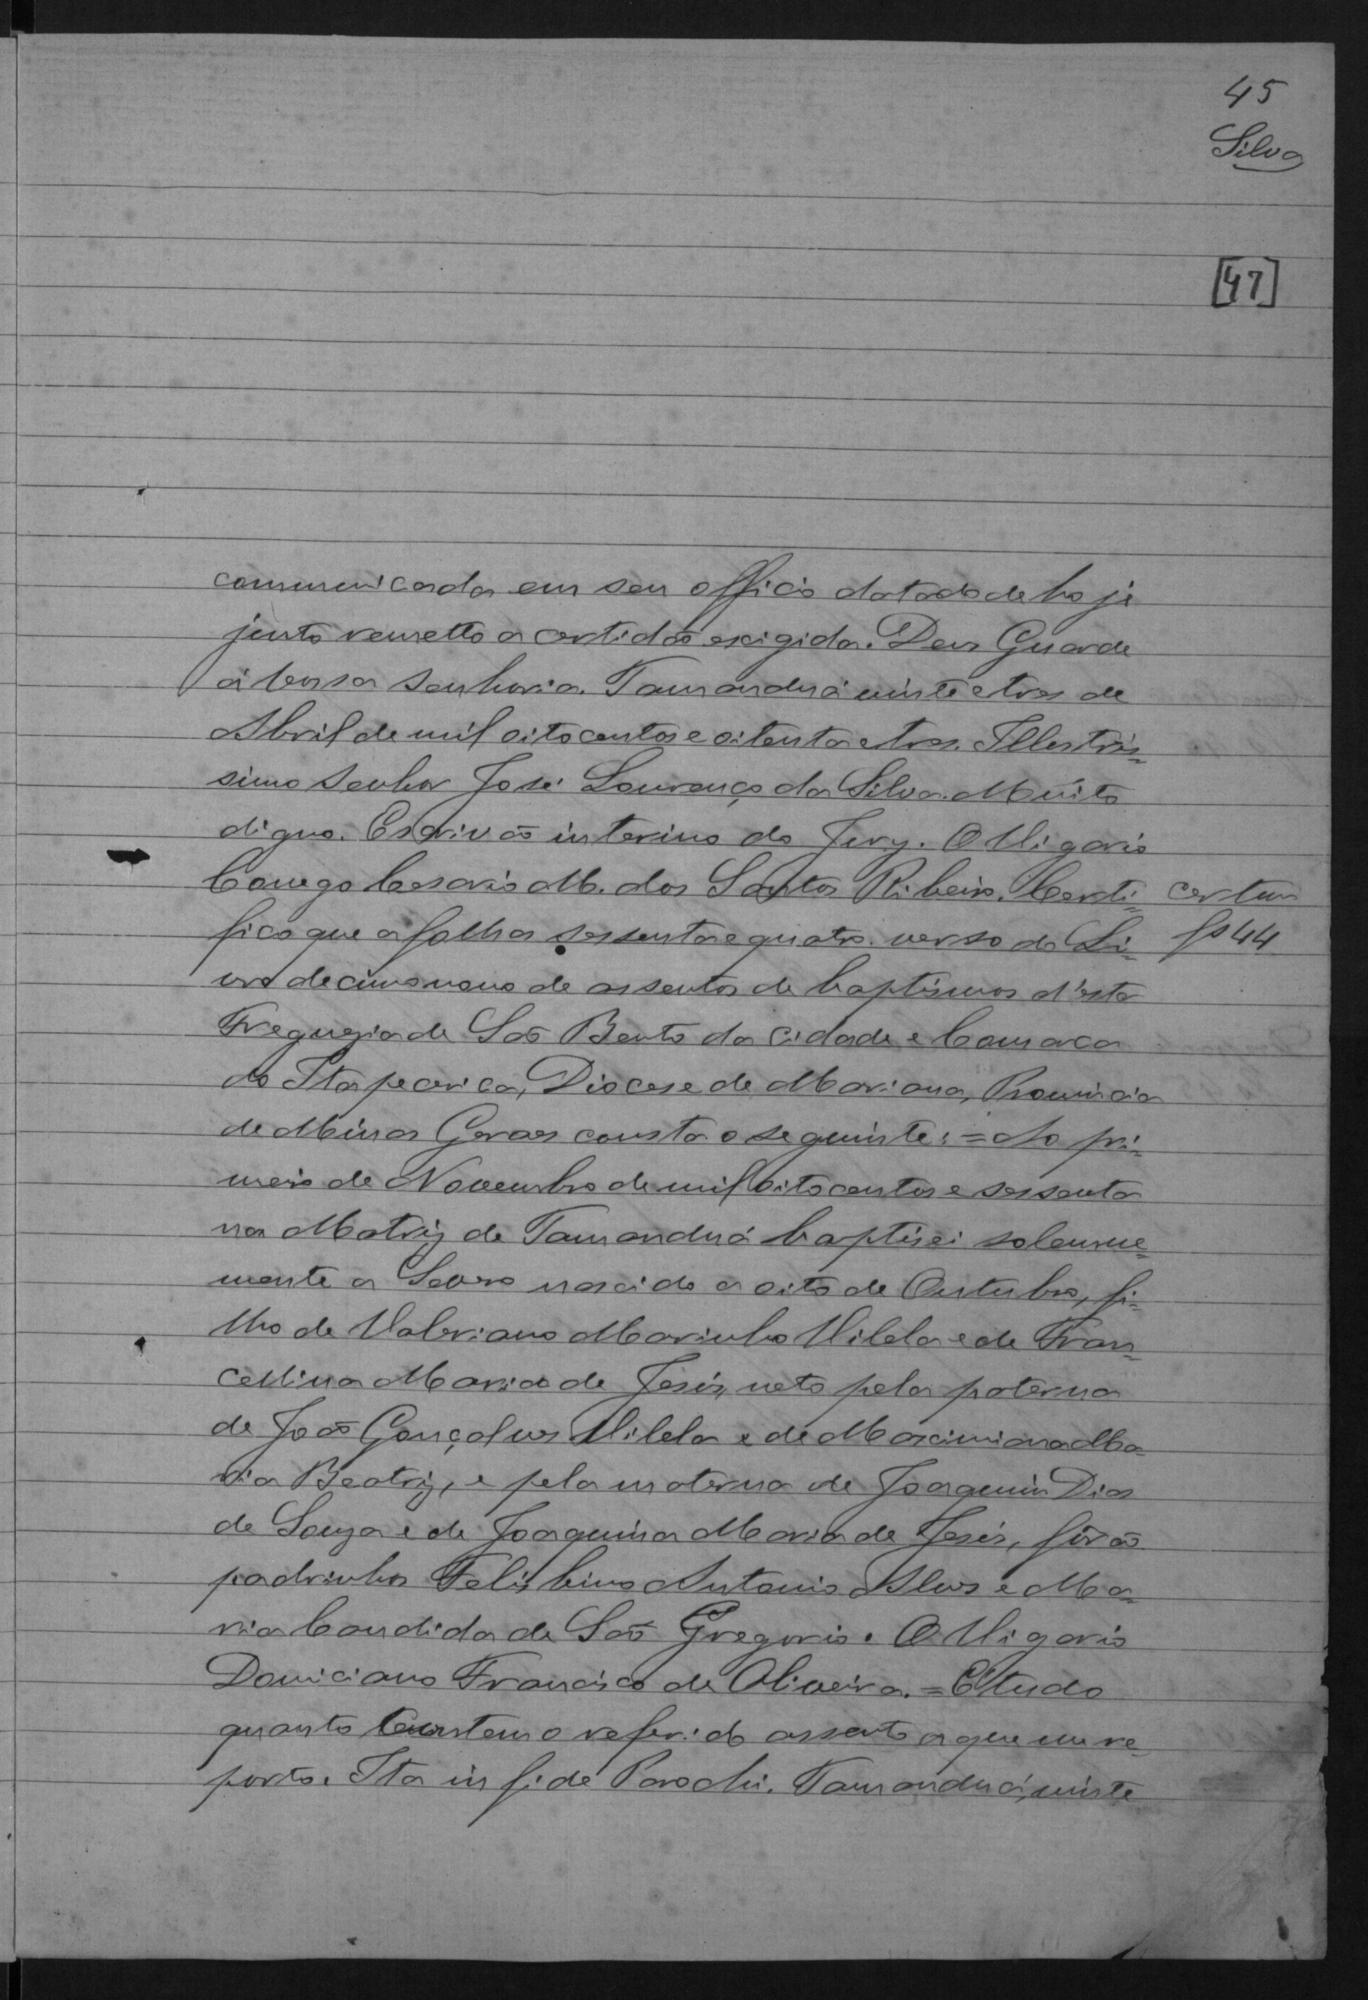 45
Silva
[47]
communicada em seu officio datado de hoje
junto remetto a certidão exigida. Deus Guarde
á Vossa Senhoria. Tamanduá vinte e tres de
Abril de mil oito centos e oitenta e tres. Illustris-
simo Senhor José Lourenço da Silva. Muito
digno. Escrivão interino do Jury. O Vigario
Conego Cesario M. dos Santos Ribeiro. Certi-
certam
fico que a folhas sessenta e quatro verso do Li-
fs 44
vro decimo nono de assentos de baptismos d'esta
Freguezia de São Bento da Cidade e Comarca
do Itapecerica, Diocese de Mariana, Provincia
de Minas Geraes consta o seguinte: = Ao pri-
meiro de Novembro de mil oito centos e sessenta
na Matriz de Tamanduá baptisei solemne-
mente a Severo nascido a oito de Outubro, fi-
lho de Valeriano Marinho Vilela e de Fran-
cellina Maria de Jesús, neto pela paterna
de João Gonçalves Vilela e de Maximiana Ma-
ria Beatriz, e pela materna de Joaquim Dias
de Souza e de Joaquina Maria de Jesús, forão
padrinhos Felisbino Antonio Alves e Ma-
ria Candida de São Gregorio. O Vigario
Domiciano Francisco de Oliveira. = E' tudo
quanto Contem o referido assento a que me re-
porto. Ita in fide Parochi. Tamanduá, vinte